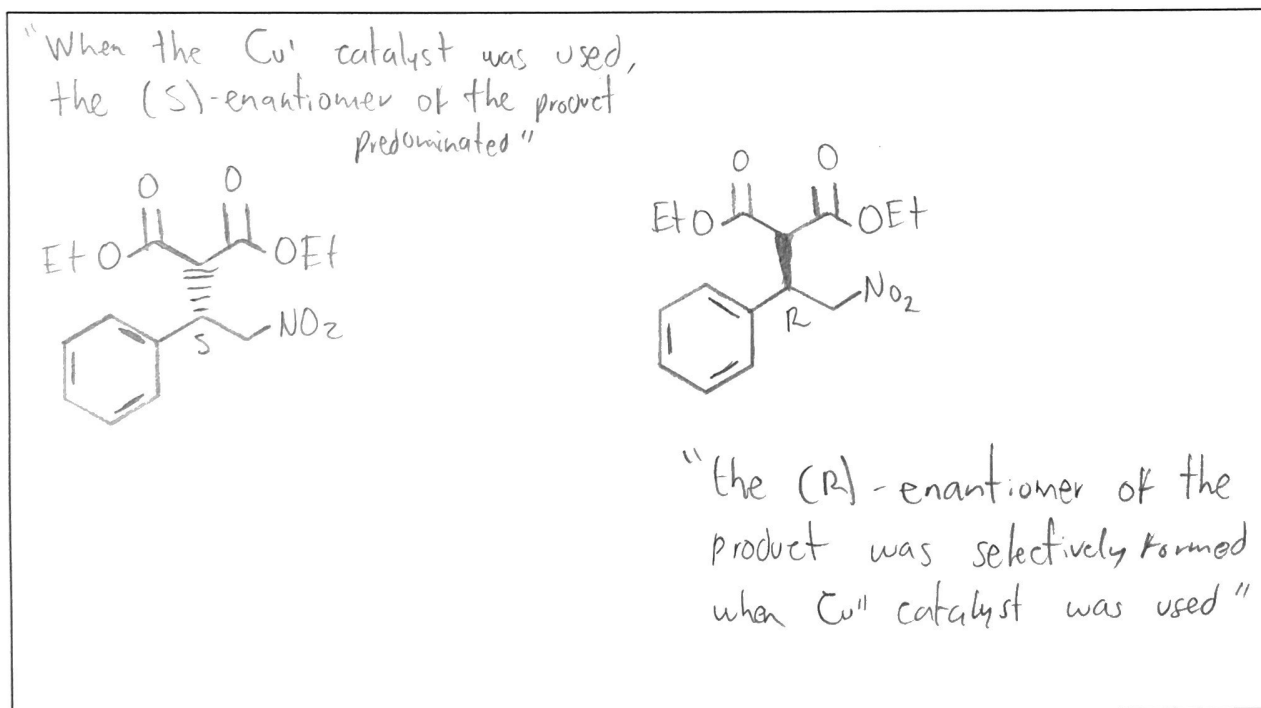 "When the Cu' catalyst was used,
the (S)-enantiomer of the product
predominated"
O O
EtO OEt
NO2
S
O O
EtO OEt
NO2
R
"the (R)-enantiomer of the
product was selectively formed
when Cu" catalyst was used"